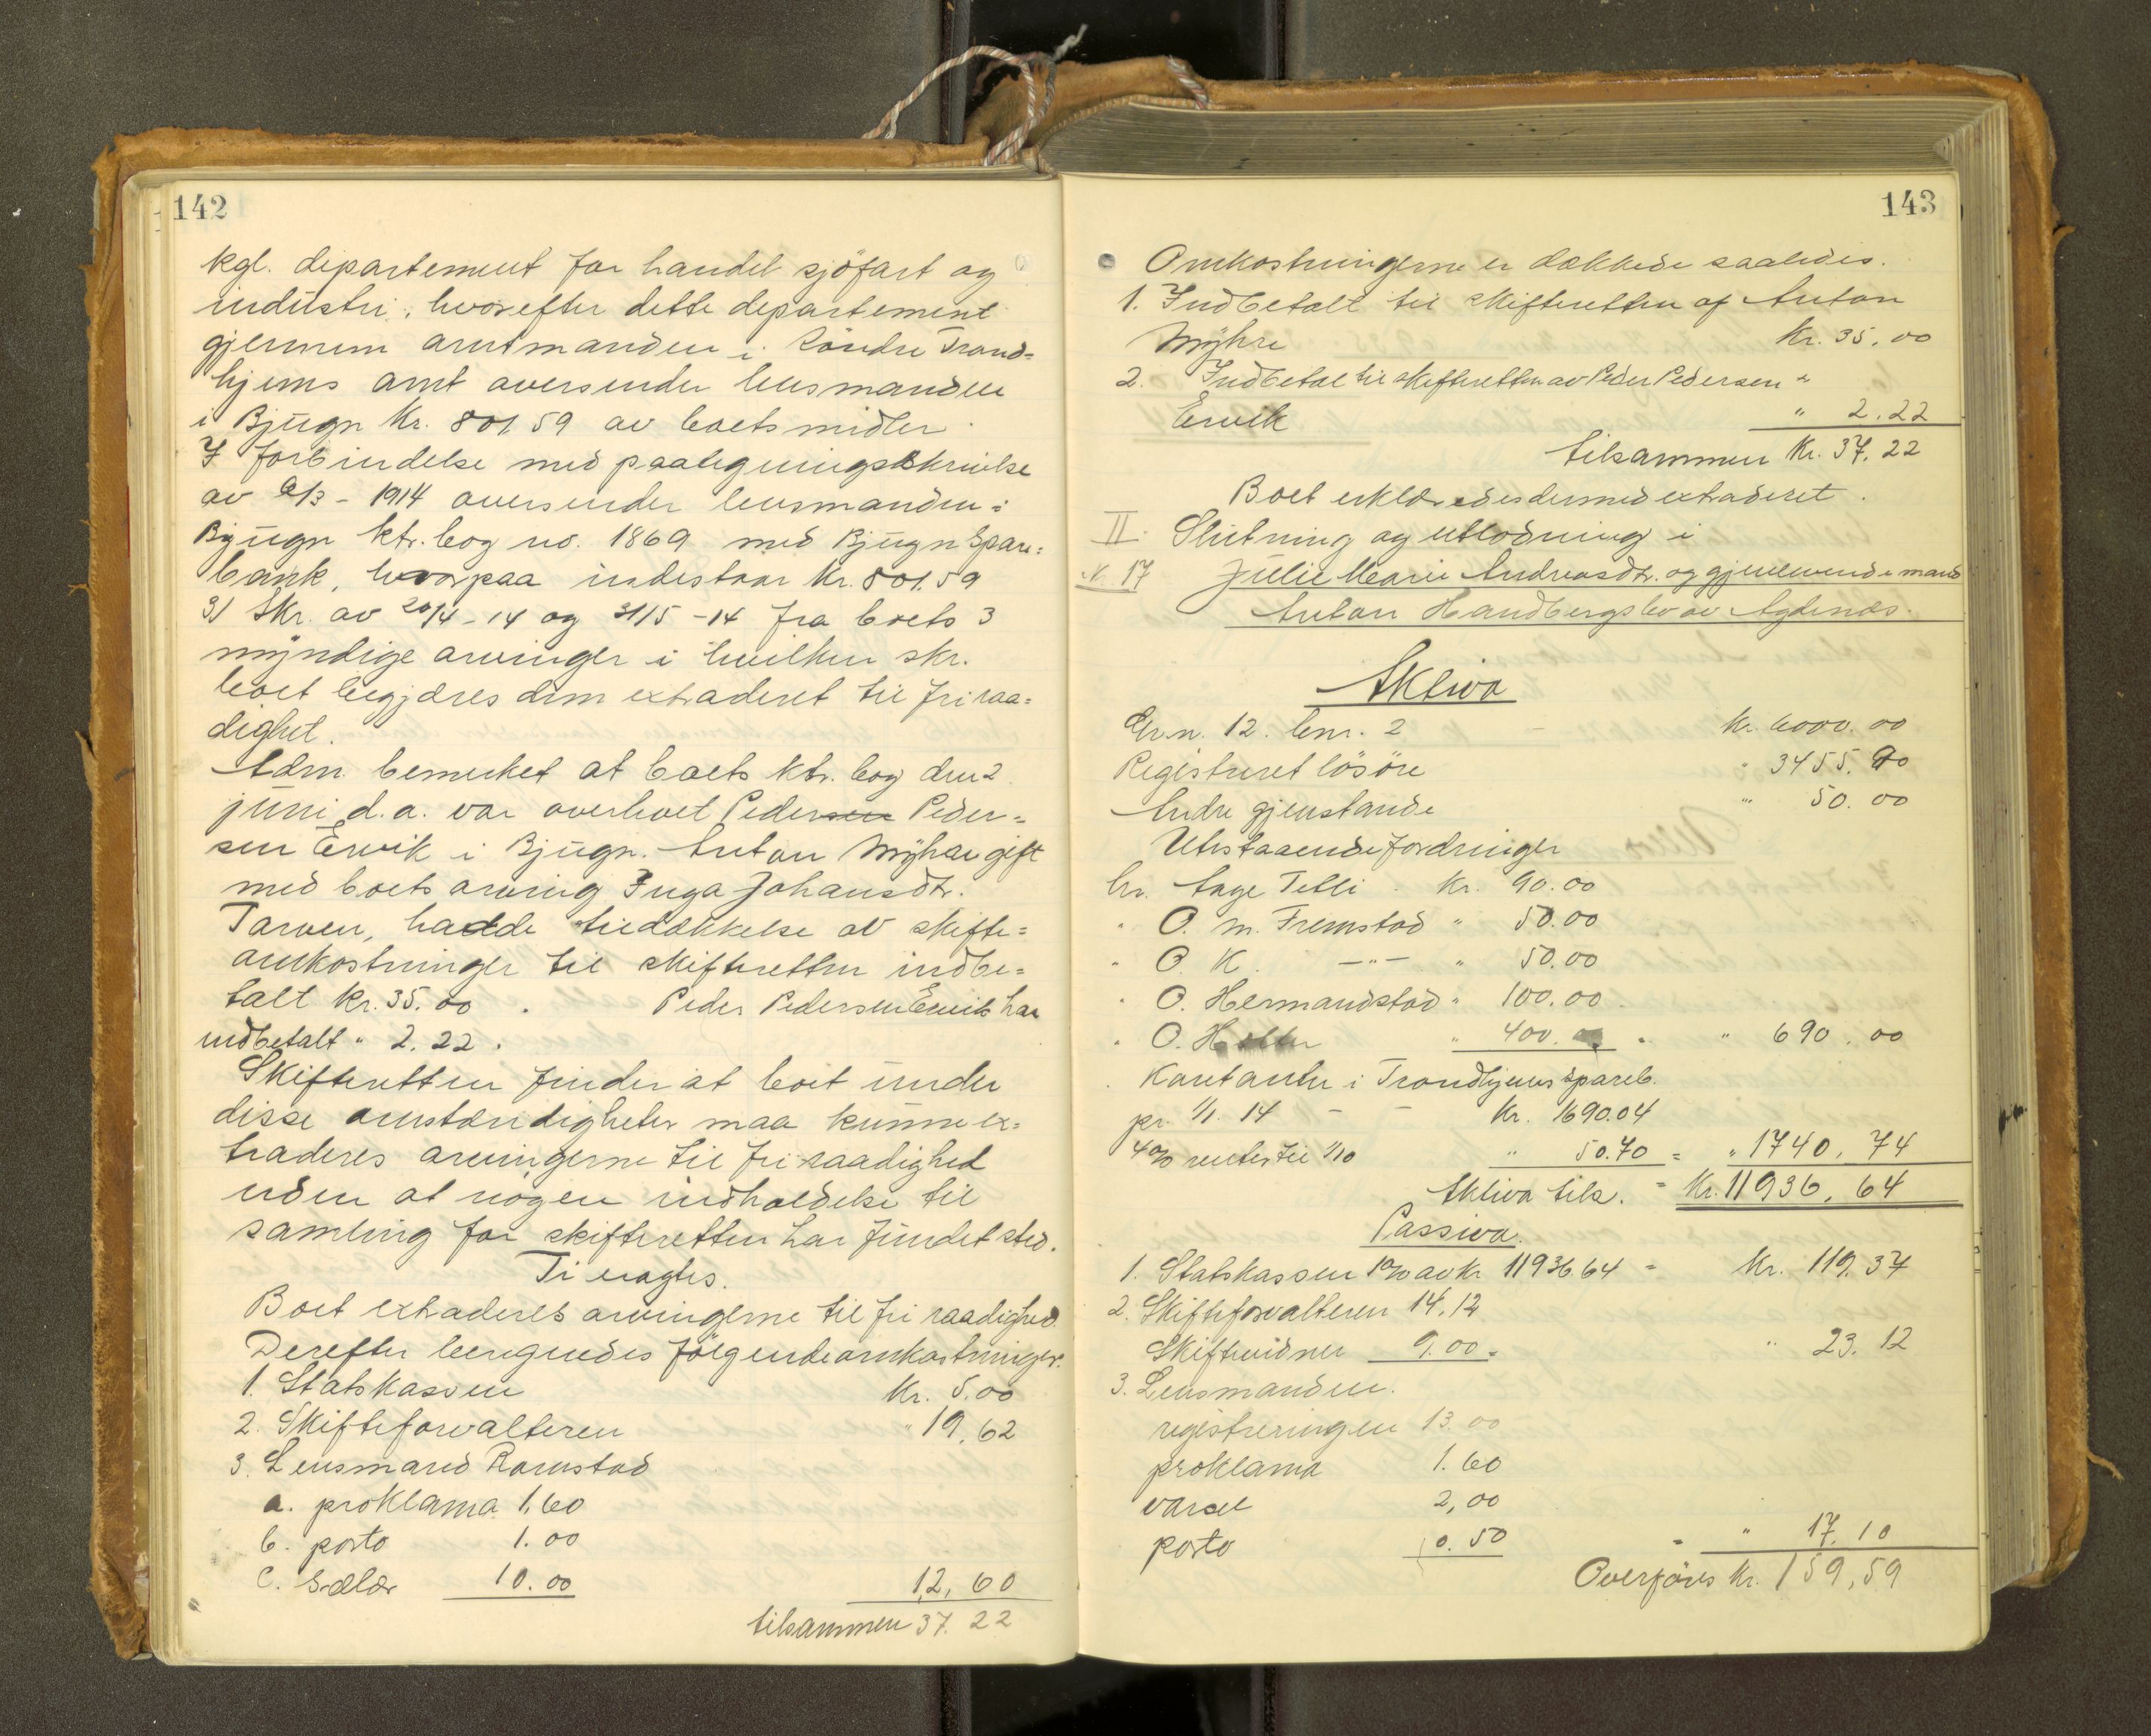 142
kgl. departement for handel sjöfart og
industri, hvorefter dette departement
gjennem amtmanden i Söndre Trond=
hjems amt oversender lensmanden
i Bjugn Kr. 801,59 av boets midler.
I forbindelse med paategningsskrivelse
av 6/3 - 1914 oversender lensmanden i
Bjugn ktr. bog no. 1869 med Bjugn Spare=
bank, hvorpaa indestaar Kr. 801.59
3) Skr. av 20/4 - 14 og 31/5 - 14 fra boets 3
myndige arvinger i hvilken skr.
boet begjæres dem extraderet til fri raa=
dighet.
Adm. bemerket at boets ktr. bog den 2
juni d.a. var overlevet Pedersen Peder=
sen Ervik i Bjugn. Anton Myhre gift
med boets arving Inga Johansdtr.
Tarven, hadde til dækkelse av skifte=
omkostninger til skifteretten indbe=
talt kr. 35.00 . Peder Pedersen Ervik har
indbetalt " 2.22.
Skifteretten finder at boet under
disse omstændigheter maa kunne ex=
traderes arvingerne til fri raadighed
uden at nogen indkaldelse til
samling for skifteretten har fundet sted.
Ti eragtes.
Boet extraderes arvingerne til fri raadighed.
Derefter beregnedes følgende omkostninger.
1. Statskassen Kr. 5.00
2. Skifteforvalteren " 19,62
3. Lensmand Ramstad
a. proklama 1,60
b. porto 1.00
c. salær 10.00 12,60
tilsammen 37.22
143
Omkostningerne er dækkede saaledes.
1. Indbetalt til skifteretten af Anton
Myhre Kr. 35,00
2. Indbetal til skifteretten av Peder Pedersen "
Ervik " 2.22
tilsammen Kr. 37,22
Boet erklæredes dermed extraderet.
II. Slutning og utlodning i
N. 17 Julie Marie Andreasdtr. og gjenlevende mand
Anton Handbergslev av Agdenæs.
Aktiva
Gr.n. 12. bnr. 2 - Kr. 6000.00
Registreret lösöre " 3455.90
Andre gjenstande " 50.00
Utestaaende fordringer
hr. Aage Tetli. Kr. 90.00
" O. M. Fremstad " 50.00
" O. K. -"- " 50.00
" O. Hermandstad " 100.00
" O. Holter " 400. " 690.00
. Kontanter i Trondhjems Spareb.
pr. 1/1. 14 - - Kr. 1690.04
4% renter til 1/10 " 50.70 = " 1740,74
Aktiva tils. = Kr. 11936,64
Passiva.
1. Statskassen 1% av kr 11936 64 = Kr. 119,37
2. Skifteforvalteren 14,12
Skiftevidner 9.00 = " 23.12
3. Lensmanden.
registreringen 13.00
proklama 1.60
varsel 2,00
porto 0.50 = " 17.10
Overføres Kr. 159,59